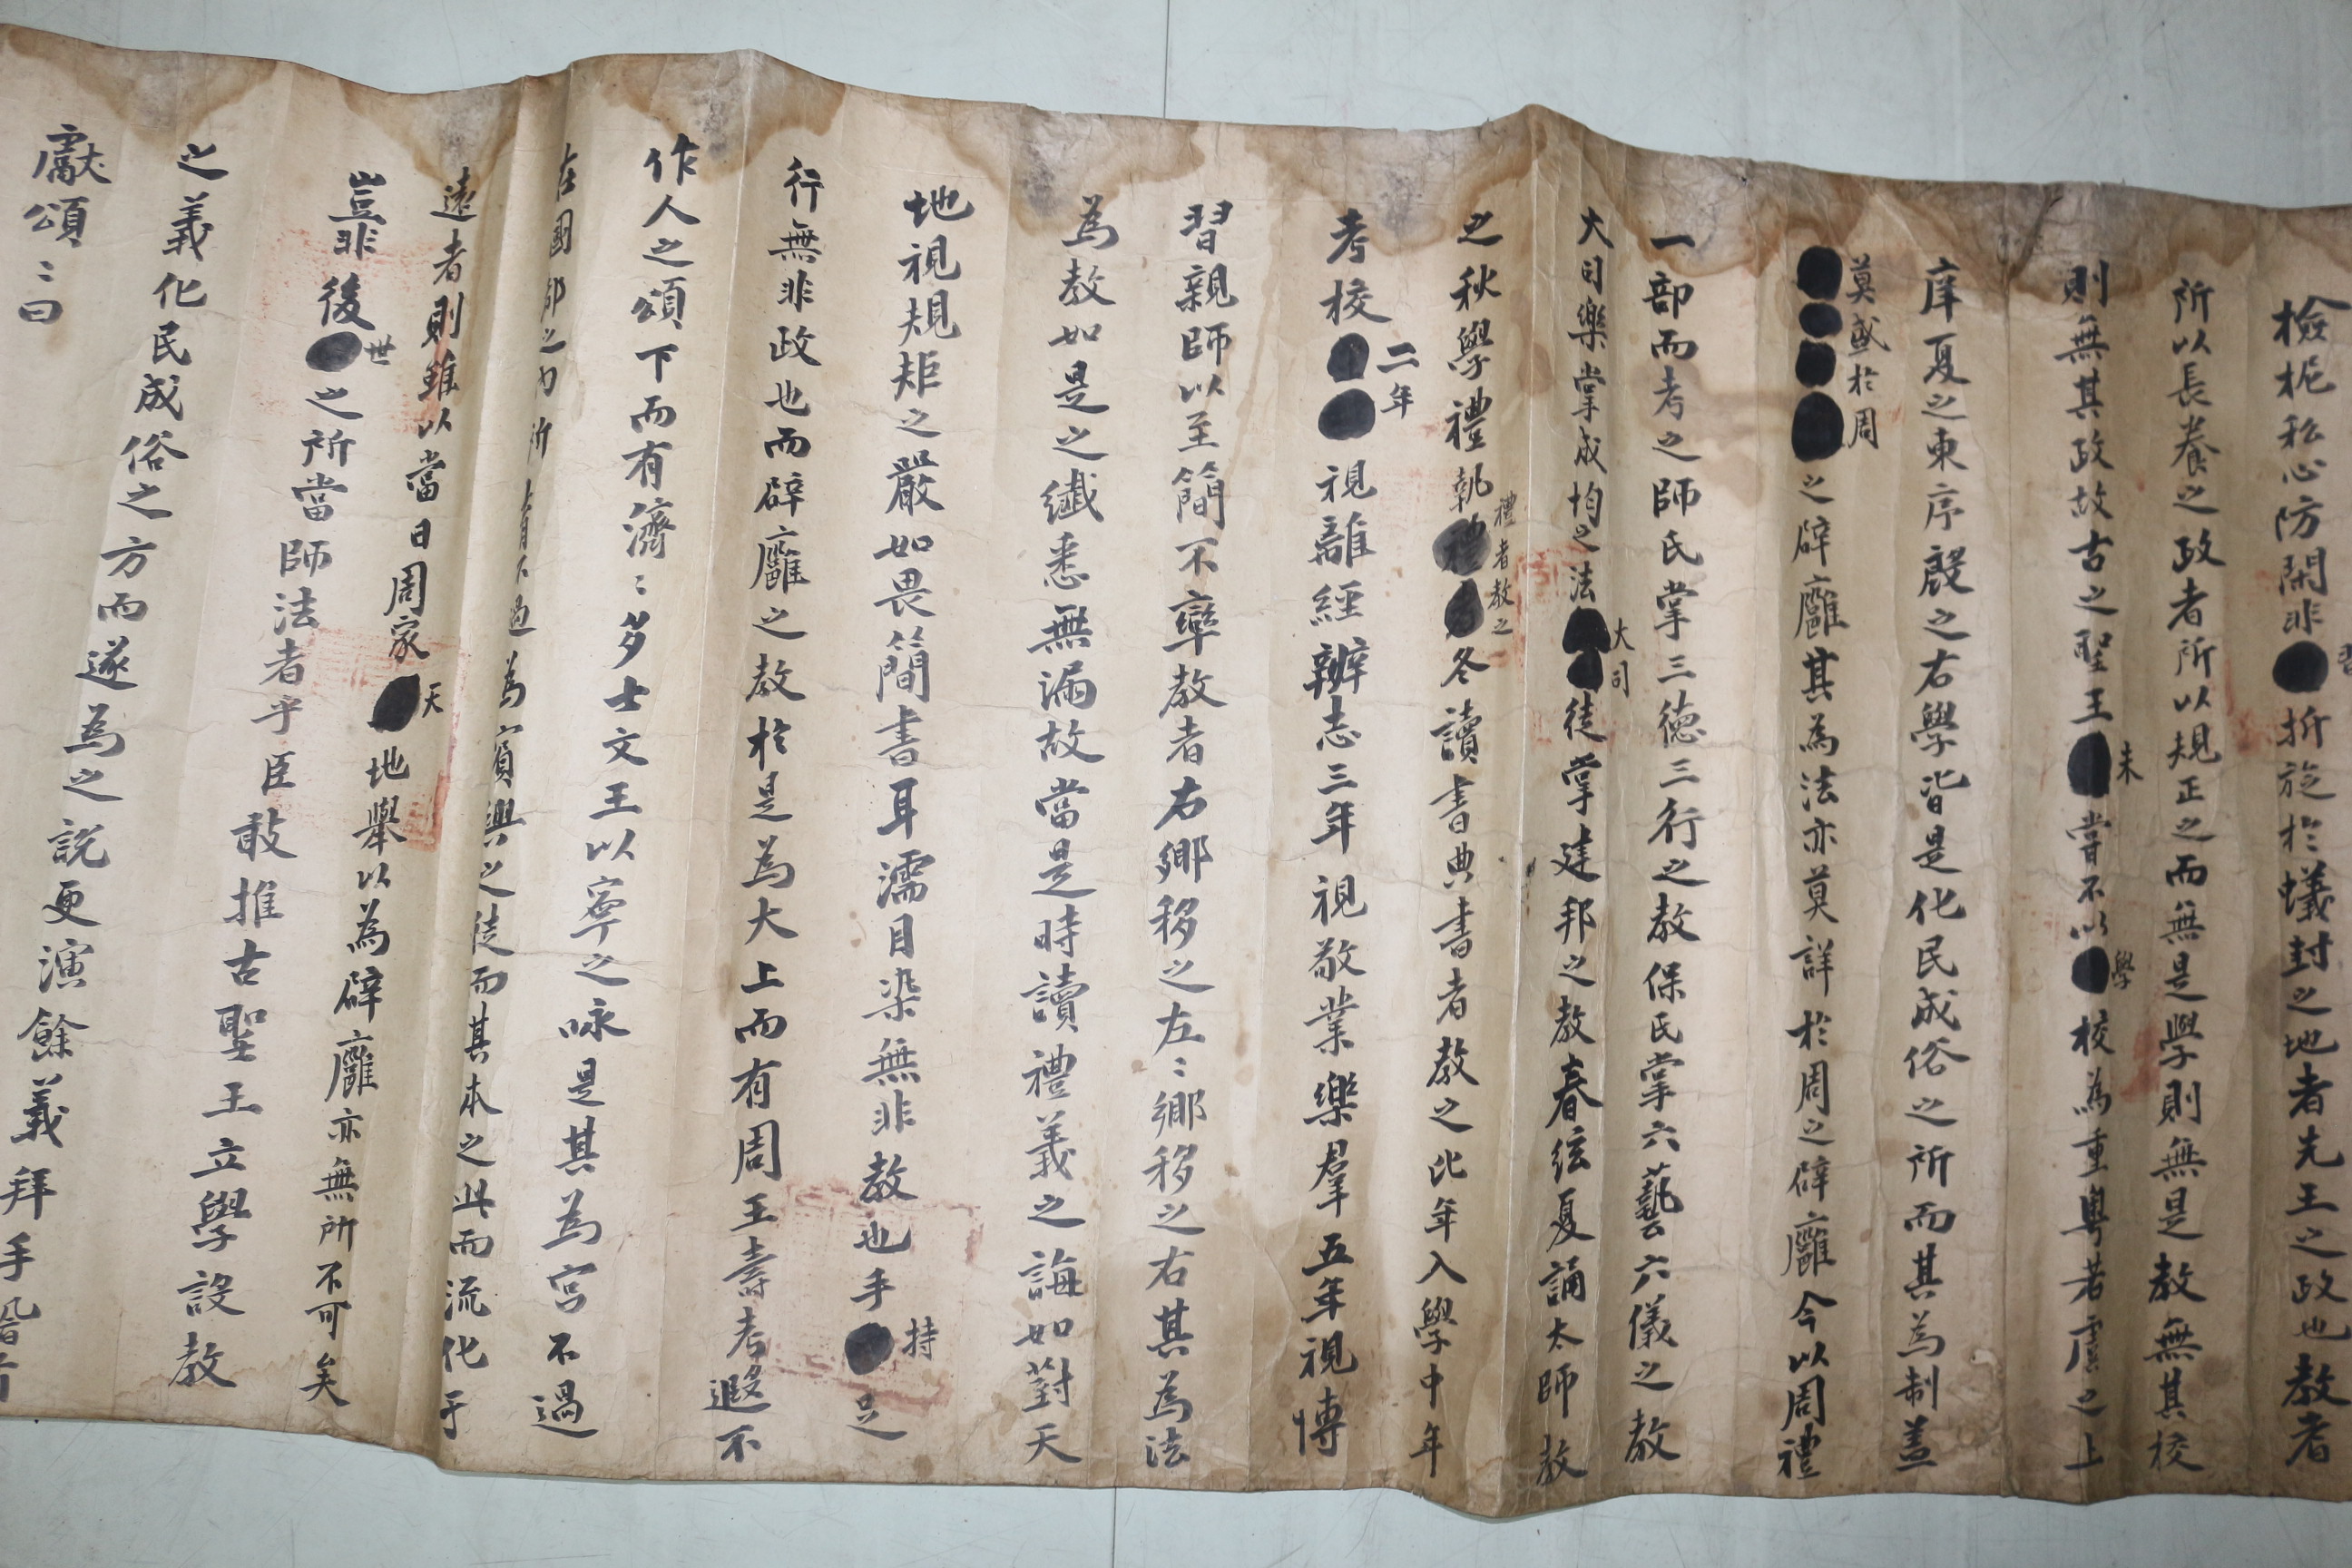 檢柅私心防閑非習折旋於蟻封之地者先王之政也教者
所以長養之政者所以規正之而無是學則無是教無其校
則無其政故古之聖王未嘗不以學校為重粤若虞之上
庠夏之東序殷之右學皆是化民成俗之所而其為制盖
莫盛於周之辟廱其為法亦莫詳於周之辟廱今以周禮
一部而考之師氏掌三德三行之教保氏掌六藝六儀之教
大司樂掌成均之法大司徒掌建邦之教春弦夏誦太師教
之秋學禮執禮者教之冬讀書典書者教之比年入學中年
考校二年視離經辨志三年視敬業樂羣五年視博
習親師以至簡不率教者右鄉移之左〻鄉移之右其為法
為教如是之纖悉無漏故當是時讀禮義之誨如對天
地視規矩之嚴如畏簡書耳濡目染無非教也手持足
行無非政也而辟廱之教於是為大上而有周王壽考遐不
作人之頌下而有濟〻多士文王以寧之咏是其為宮不過
在國都之內所不過為賓興之徒而其本之此而流化于
遠者則雖以當日周家天地舉以為辟廱亦無所不可矣
豈非後世之所當師法者乎臣敢推古聖王立學設教
之義化民成俗之方而遂為之說更演餘義拜手
獻頌〻曰